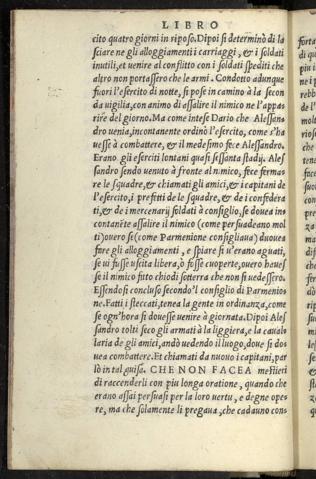 LIBRO
cito quatro giorni in riposo. Dipoi si determinò di la
sciare ne gli alloggiamenti i carriaggi, & i soldati
inutili, et uenire al conflitto con i soldati spediti che
altro non portassero che le armi. Condotto adunque
fuori l'esercito di notte, si pose in camino à la secon
da uigilia, con animo di assalire il nimico ne l'appa-
rire del giorno. Ma come intese Dario che Alessan-
dro uenia, incontanente ordinò l'esercito, come s'ha
uesse à combattere, & il medesimo fece Alessandro.
Erano gli eserciti lontani quasi sessanta stadij. Ales
sandro sendo uenuto à fronte al nimico, fece ferma-
re le squadre, & chiamati gli amici, & i capitani de
l'esercito, i prefitti de le squadre, & de i confedera
ti, & de i mercenarij soldati à consiglio, se doueа in-
contanẽte assalire il nimico (come persuadeano mol
ti) ouero se (come Parmenione consigliaua) douea
fare gli alloggiamenti, e spiare si u'erano aguati,
se ui fusse uscita libera, ò fosse cuoperte, ouero hauesse
se il nimico fitto chiodi sotterra che non si uedessero.
Essendosi concluso secondo'l consiglio di Parmenio-
ne. Fatti i steccati, tenea la gente in ordinanza, come
se ogn'hora si douesse uenire à giornata. Dipoi Ales
sandro tolti seco gli armati à la liggiera, e la caual-
laria de gli amici, andò uedendo il luogo, doue si do-
uea combattere. Et chiamati da nuouo i capitani, par
lò in tal guisa. CHE NON FACEA mestieri
di raccenderli con piu longa oratione, quando che
erano assai persuasi per la loro uertu, e degne ope-
re, ma che solamente li pregaua, che cadauno con-